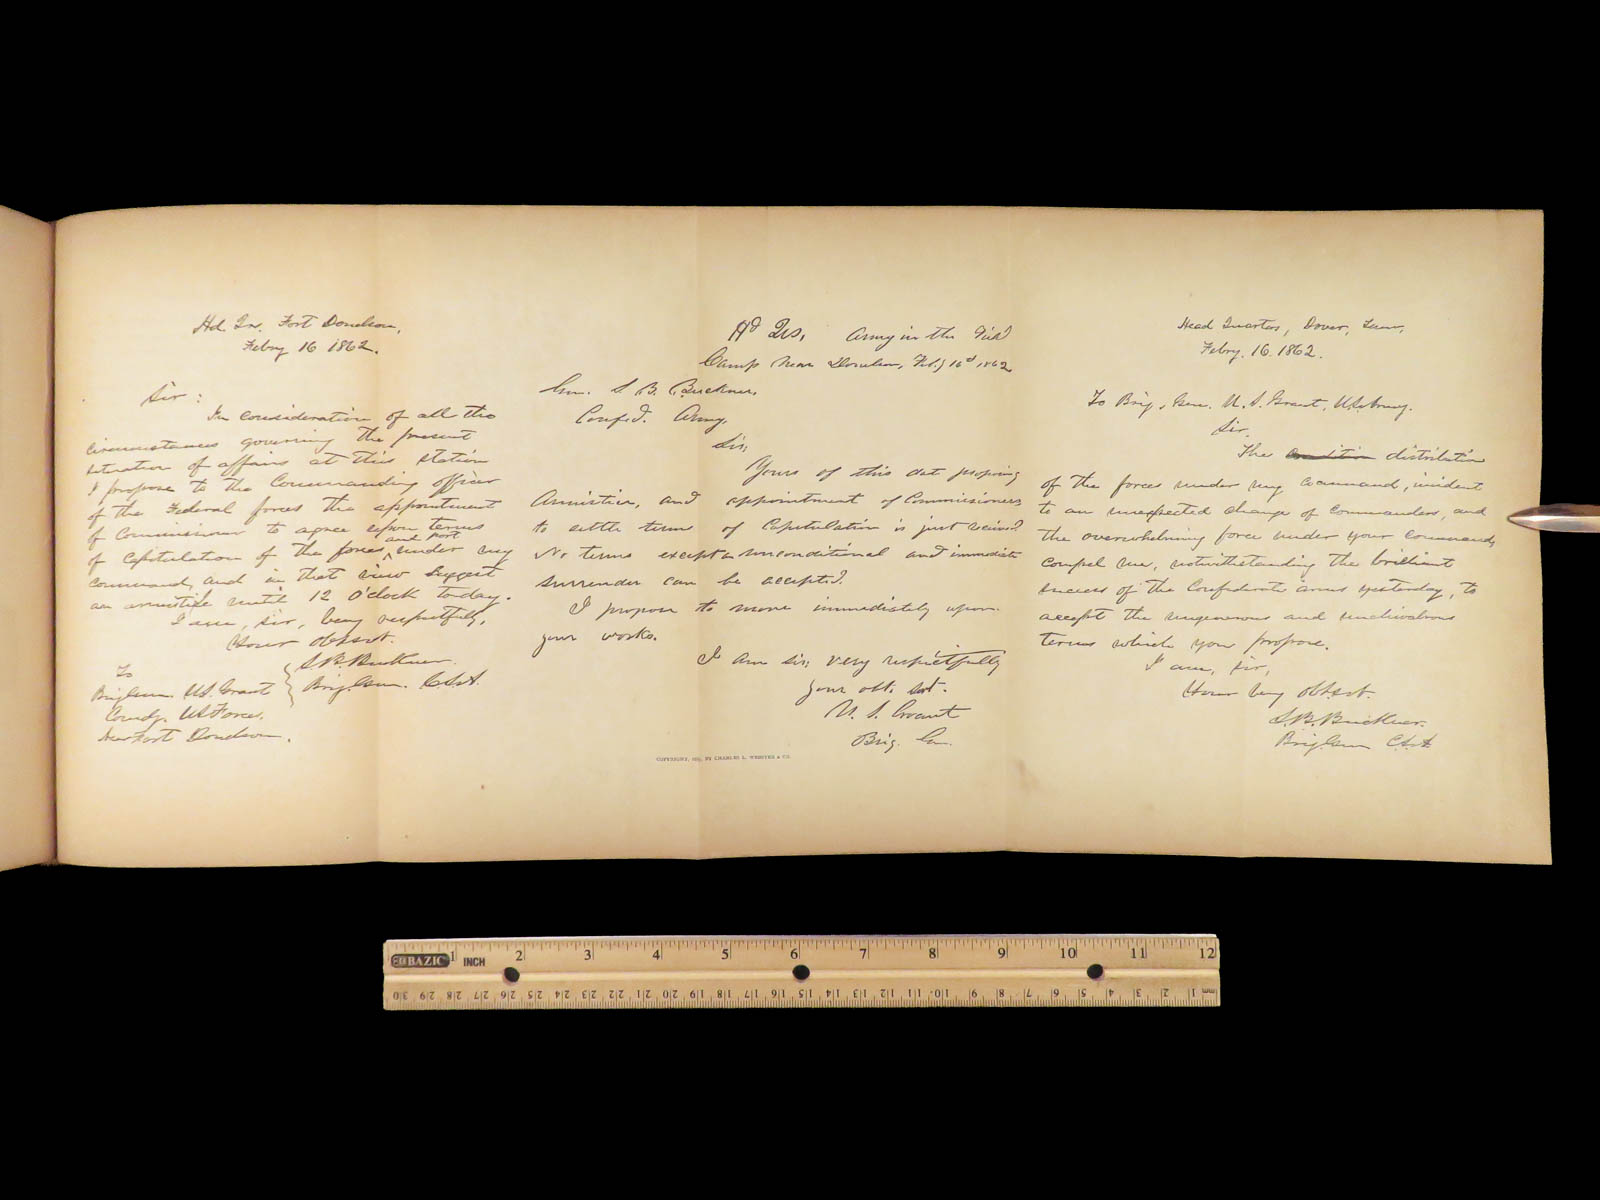 Hd. Qrs. Fort Donelson,
Febry 16 1862.
Sir:
In consideration of all the
circumstances governing the present
situation of affairs at this station
I propose to the Commanding officer
of the Federal forces the appointment
of Commissioners to agree upon terms
of capitulation of the forces and fort under my
command, and in that view suggest
an armistice until 12 o'clock today.
I am, sir, very respectfully,
Your obt sevt.
S. B. Buckner.
Brig Gen. C.S.A.
To
Brig Gen. U.S. Grant
Comdg. US Forces.
Near Fort Donelson.
Hd Qrs, Army in the Field
Camp near Donelson, Feby 16th 1862
Gen. S. B. Buckner,
Confed. Army,
Sir;
Yours of this date proposing
Armistice, and appointment of Commissioners
to settle terms of Capitulation is just received.
No terms except an unconditional and immediate
surrender can be accepted.
I propose to move immediately upon
your works.
I am sir; very respectfully
your obt. svt.
U. S. Grant
Brig. Gen.
COPYRIGHT, 1885, BY CHARLES L. WEBSTER & CO.
Head Quarters, Dover, Tenn,
Febry. 16. 1862.
To Brig. Gen. U. S. Grant, US Army.
Sir.
The condition distribution
of the forces under my command, incident
to an unexpected change of commanders, and
the overwhelming force under your command,
compel me, notwithstanding the brilliant
success of the Confederate arms yesterday, to
accept the ungenerous and unchivalrous
terms which you propose.
I am, sir,
Your very obt svt.
S. B. Buckner.
Brig Gen C.S.A
BAZIC INCH
1 2 3 4 5 6 7 8 9 10 11 12
30 29 28 27 26 25 24 23 22 21 20 19 18 17 16 15 14 13 12 11 10 9 8 7 6 5 4 3 2 1 mm